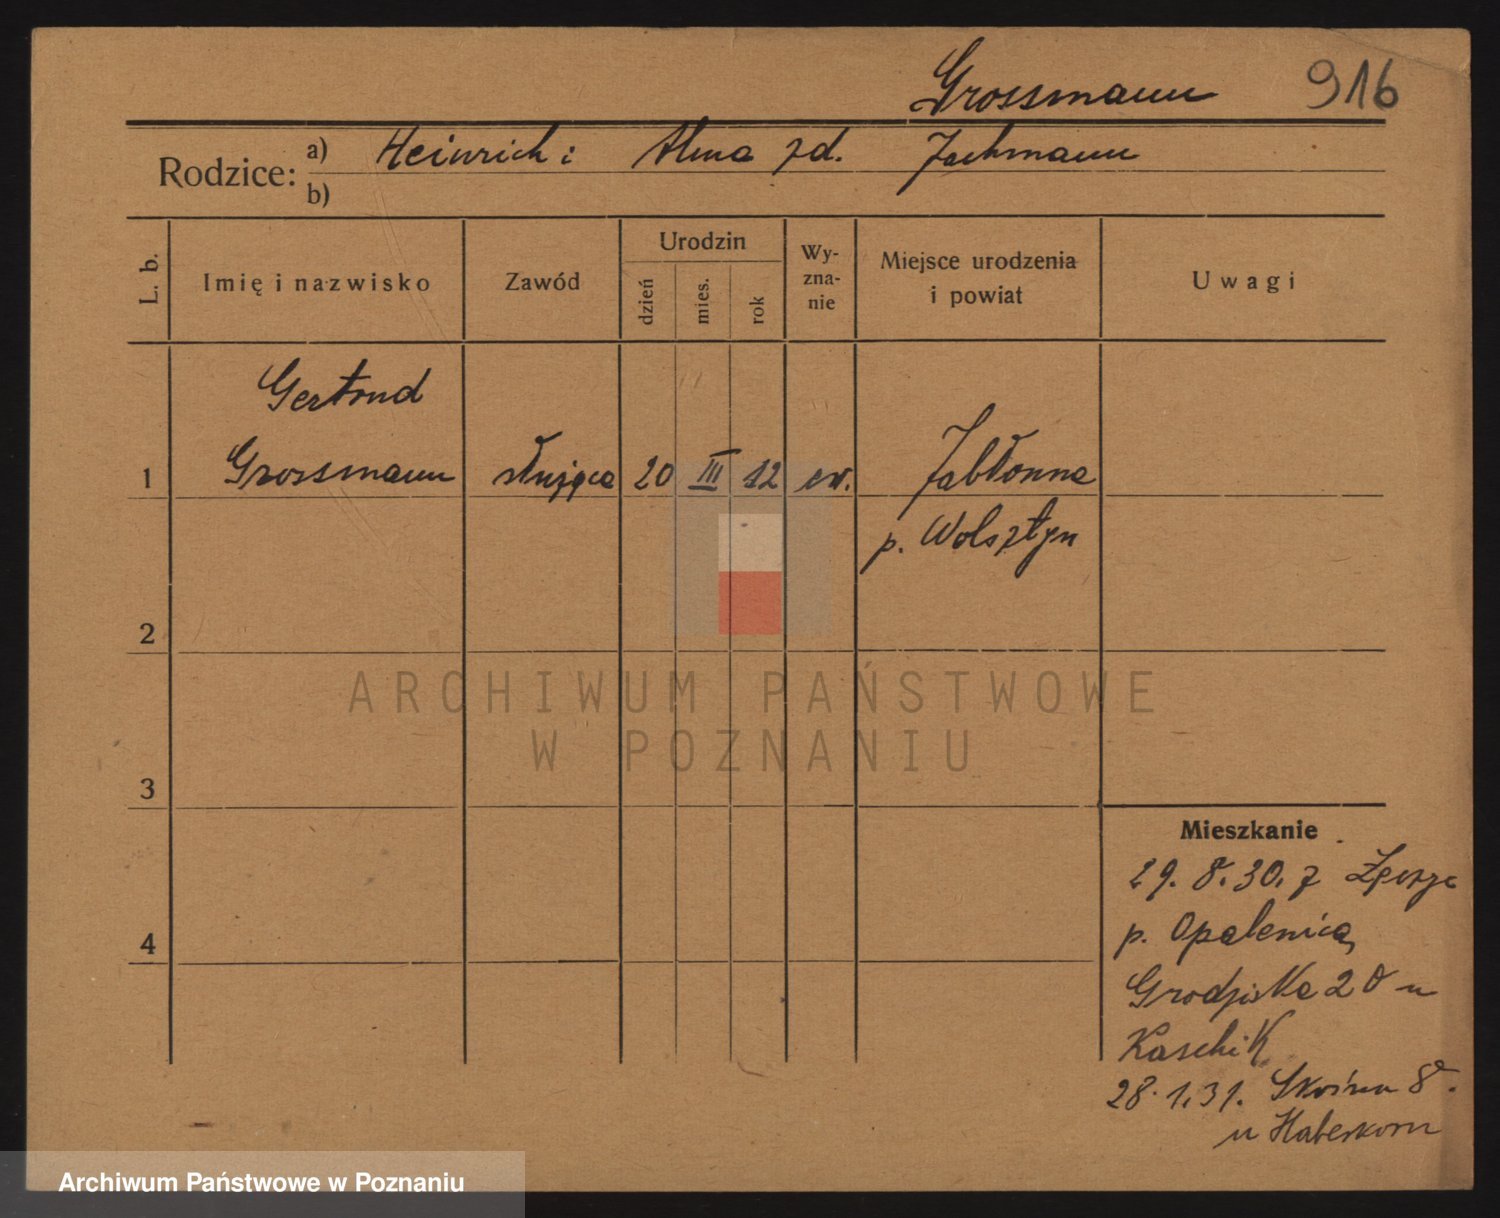 Grossmann 916
Rodzice: a) Heinrich i Alma zd. Jachmann
b)
L. b. Imię i nazwisko Zawód Urodzin dzień mies. rok Wy-zna-nie Miejsce urodzenia i powiat Uwagi
Gertrud
1 Grossmann służąca 20 III 12 ew. Jabłonna
p. Wolsztyn
2
3
4
ARCHIWUM PAŃSTWOWE
W POZNANIU
Mieszkanie
29. 8. 30. z
p. Opalenica,
Grodziska 20 u
Kaschik
28. 1. 31. Skośna 8.
u Haberkorn
Archiwum Państwowe w Poznaniu